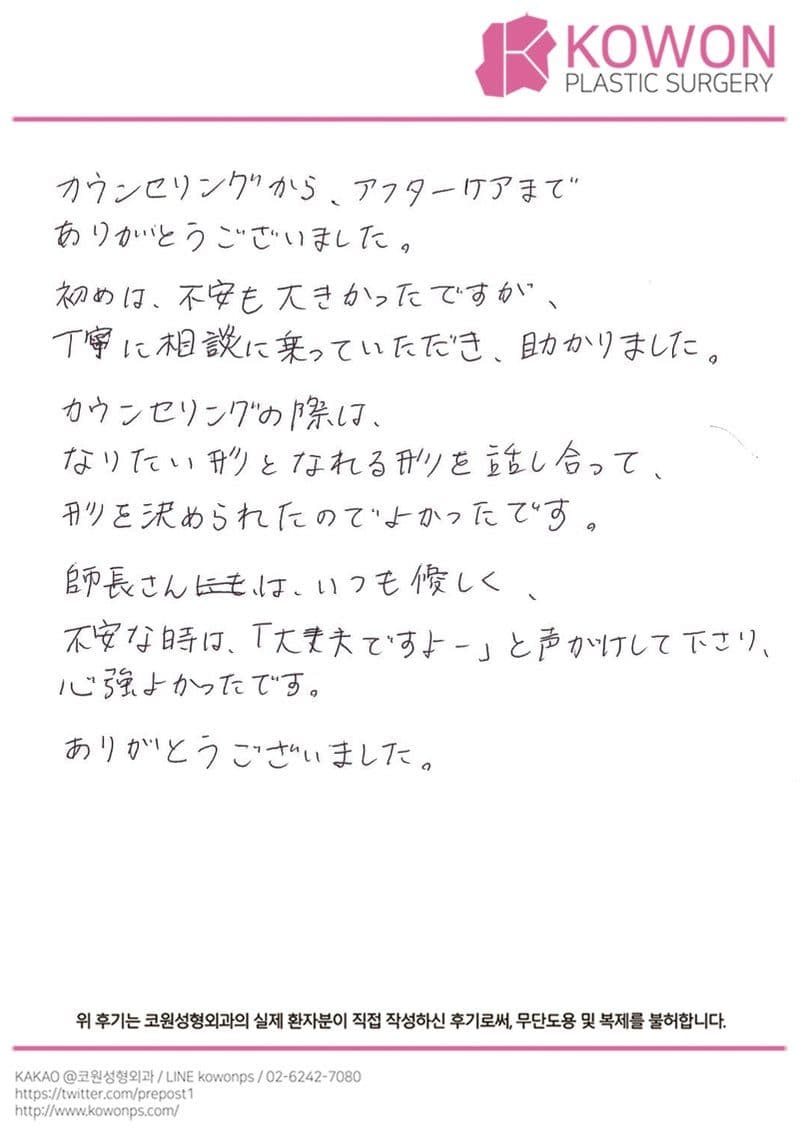 KOWON
PLASTIC SURGERY
カウンセリングから、アフターケアまで
ありがとうございました。
初めは、不安も大きかったですが、
丁寧に相談に乗っていただき、助かりました。
カウンセリングの際は、
なりたい形となれる形を話し合って、
形を決められたのでよかったです。
師長さんは、いつも優しく、
不安な時は、「大丈夫ですよー」と声がけして下さり、
心強よかったです。
ありがとうございました。
위 후기는 코원성형외과의 실제 환자분이 직접 작성하신 후기로써, 무단도용 및 복제를 불허합니다.
KAKAO @코원성형외과 / LINE kowonps / 02-6242-7080
https://twitter.com/prepost1
http://www.kowonps.com/